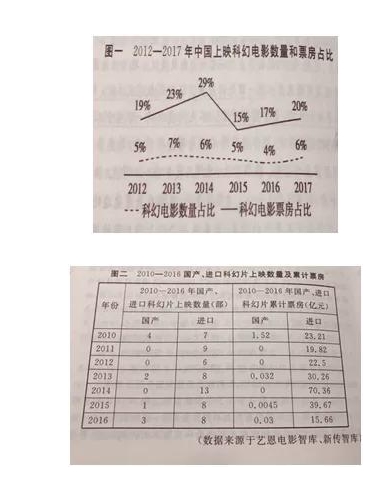 图一 2012—2017年中国上映科幻电影数量和票房占比
19% 23% 29% 15% 17% 20%
5% 7% 6% 5% 4% 6%
2012 2013 2014 2015 2016 2017
科幻电影数量占比 科幻电影票房占比
图二 2010—2016国产、进口科幻片上映数量及累计票房
年份 2010—2016年国产、进口科幻片上映数量(部) 2010—2016年国产、进口科幻片累计票房(亿元)
国产 进口 国产 进口
2010 4 7 1.52 23.21
2011 0 9 0 19.82
2012 0 6 0 22.5
2013 2 8 0.032 30.26
2014 0 13 0 70.36
2015 1 8 0.0045 39.67
2016 3 8 0.03 15.66
(数据来源于艺恩电影智库、新传智库